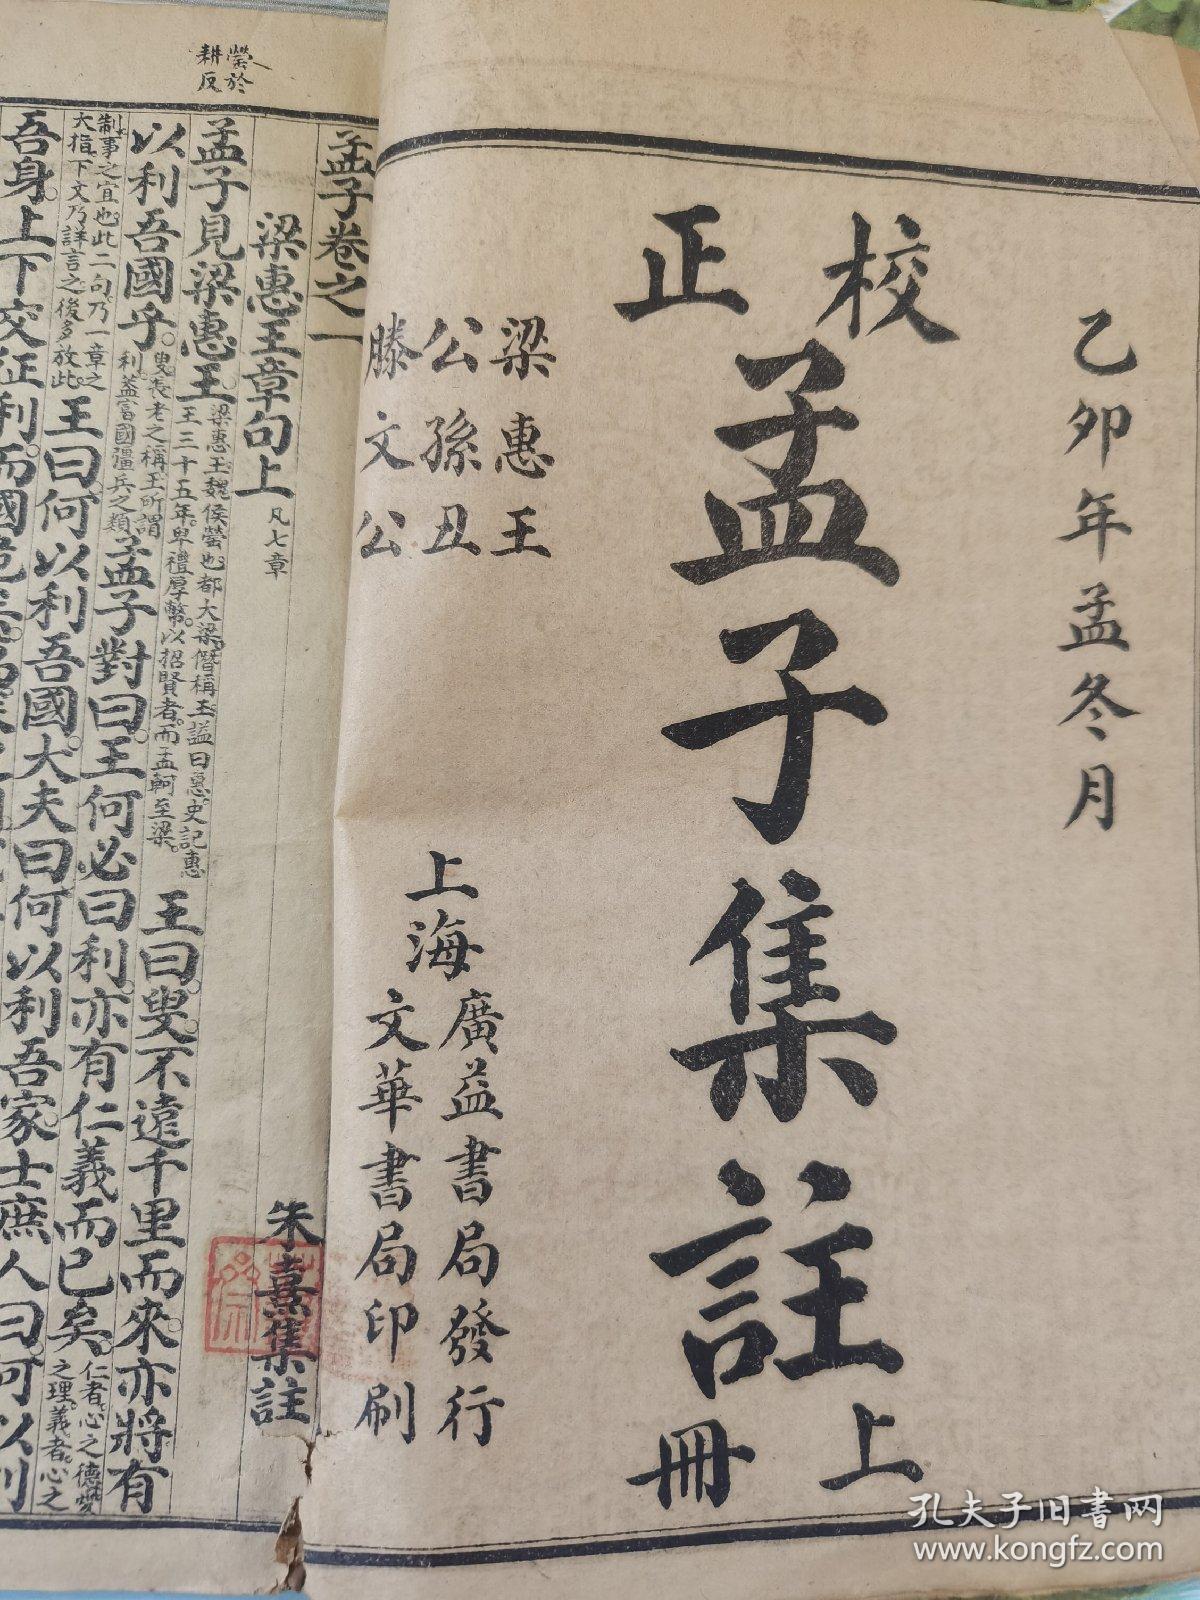 乙卯年孟冬月
校正
孟子集註
上冊
梁惠王
公孫丑
滕文公
上海
廣益書局發行
文華書局印刷
罃於
耕反
孟子卷之一
朱熹集註
梁惠王章句上
凡七章
孟子見梁惠王
梁惠王魏侯罃也都大梁僭稱王諡曰惠史記惠
王三十五年卑禮厚幣以招賢者而孟軻至梁
王曰叟不遠千里而來亦將有
以利吾國乎
叟長老之稱王所謂
利蓋富國彊兵之類
孟子對曰王何必曰利亦有仁義而已矣
仁者心之德愛
之理義者心之
制事之宜也此二句乃一章之
大指下文乃詳言之後多放此
王曰何以利吾國大夫曰何以利吾家士庶人曰何以利
吾身上下交征利而國危矣
孔夫子旧书网
www.kongfz.com